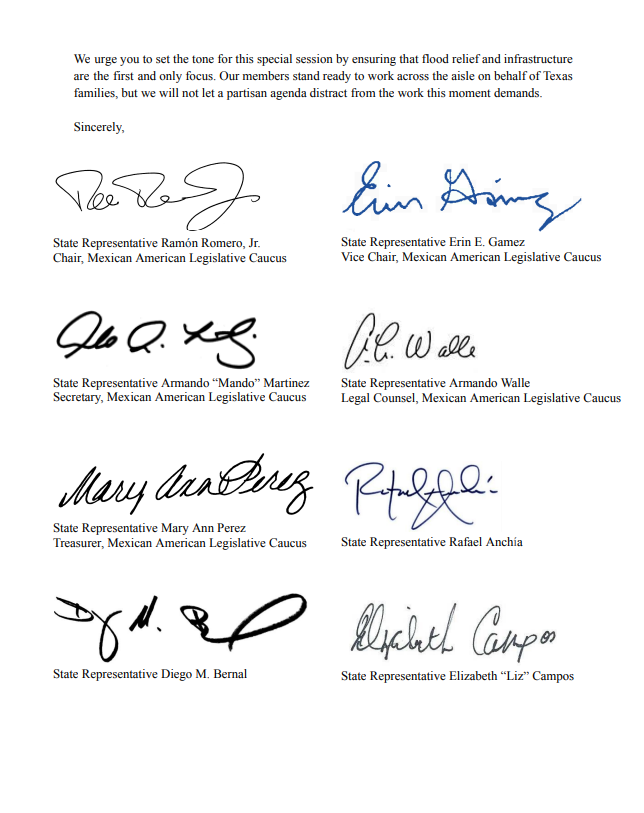 We urge you to set the tone for this special session by ensuring that flood relief and infrastructure
are the first and only focus. Our members stand ready to work across the aisle on behalf of Texas
families, but we will not let a partisan agenda distract from the work this moment demands.
Sincerely,
Erin Gámez
State Representative Ramón Romero, Jr.
Chair, Mexican American Legislative Caucus
State Representative Erin E. Gamez
Vice Chair, Mexican American Legislative Caucus
A.C. Walle
State Representative Armando “Mando” Martinez
Secretary, Mexican American Legislative Caucus
State Representative Armando Walle
Legal Counsel, Mexican American Legislative Caucus
Mary Ann Perez
State Representative Mary Ann Perez
Treasurer, Mexican American Legislative Caucus
State Representative Rafael Anchia
Elizabeth Campos
State Representative Diego M. Bernal
State Representative Elizabeth “Liz” Campos